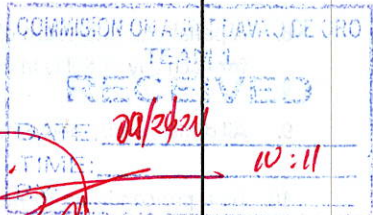 COMMISION ON AUDIT DAVAO DE ORO
TEAM
RECEIVED
DATE:
TIME: 10:11